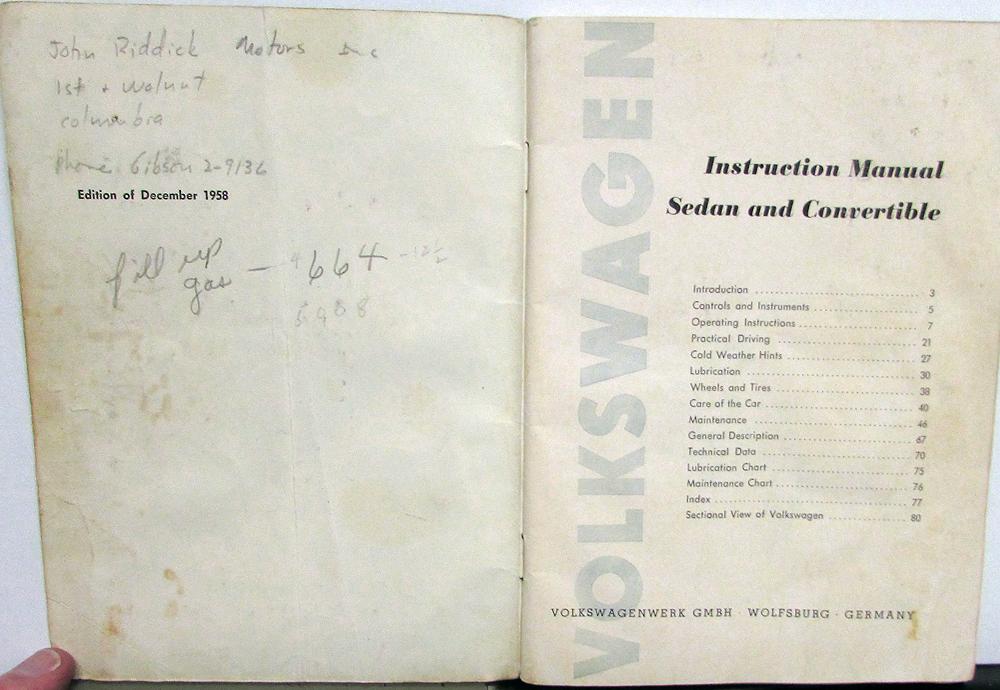 John Riddick Motors Inc
1st + Walnut
Columbia
Phone. Gibson 2-9136
Edition of December 1958
fill up
gas — 664 - 12½
5988
VOLKSWAGEN
Instruction Manual
Sedan and Convertible
Introduction .......... 3
Controls and Instruments .......... 5
Operating Instructions .......... 7
Practical Driving .......... 21
Cold Weather Hints .......... 27
Lubrication .......... 30
Wheels and Tires .......... 38
Care of the Car .......... 40
Maintenance .......... 46
General Description .......... 67
Technical Data .......... 70
Lubrication Chart .......... 75
Maintenance Chart .......... 76
Index .......... 77
Sectional View of Volkswagen .......... 80
VOLKSWAGENWERK GMBH · WOLFSBURG · GERMANY